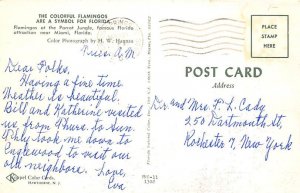 THE COLORFUL FLAMINGOS
ARE A SYMBOL FOR FLORIDA
Flamingos at the Parrot Jungle, famous Florida
attraction near Miami, Florida.
Color Photograph by H. W. Hannau
A.M.
Dear Folks,
Having a fine time.
Weather is beautiful.
Bill and Katherine visited
us from Thurs. to Sun.
They took me down to
Englewood to visit our
old neighbors. Love,
Eva
Color Cards
HAWTHORNE, N. J.
PLACE
STAMP
HERE
POST CARD
Address
Dr and Mrs. F. L. Cady
250 Dartmouth St,
Rochester 7, New York